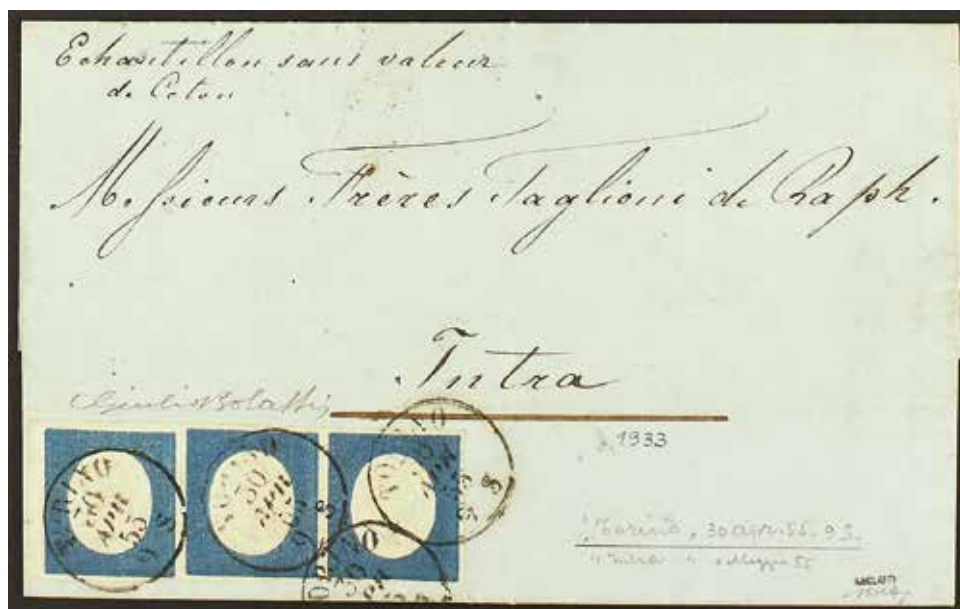 Echantillon sans valeur
de Coton
Messieurs Frères Taglioni de Raph.
Intra
Giulio Bolaffi
1933
TORINO
30
APR
55
9 S
TORINO
30
APR
55
9 S
TORINO
30
APR
55
9 S
TORINO
30
APR
Torino, 30 apr. 55. 9 S.
" Intra " Maggio 55